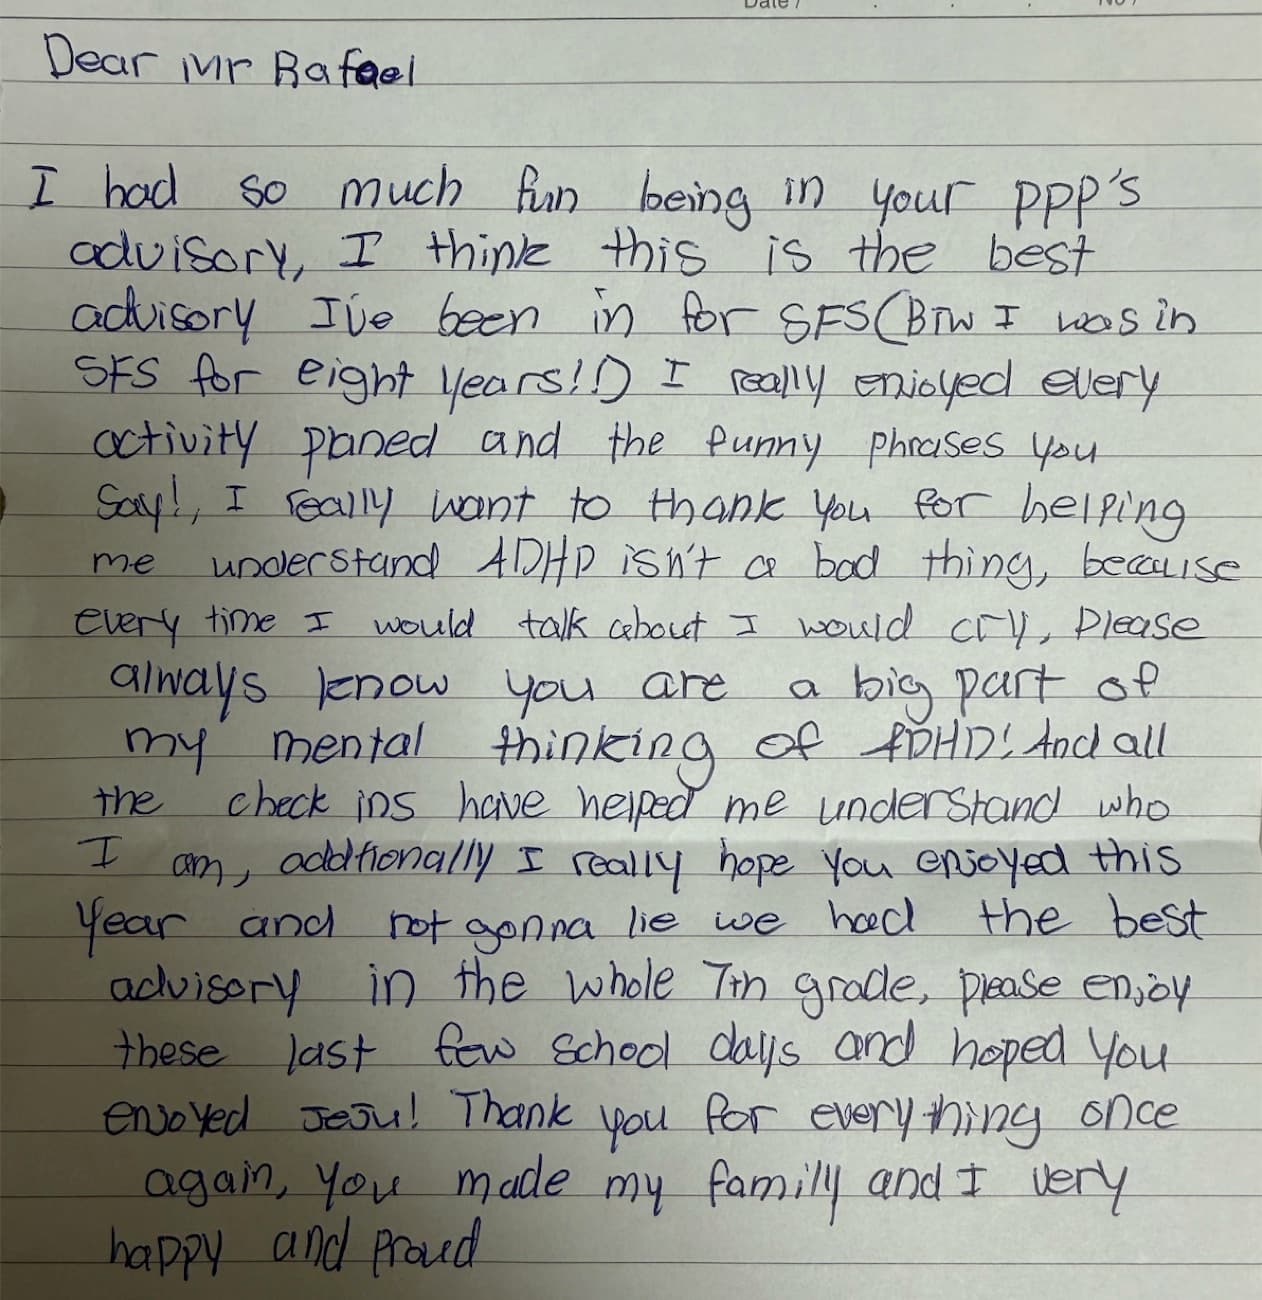 Date /
No /
Dear Mr Rafael
I had so much fun being in your PPP's
advisory, I think this is the best
advisory I've been in for SFS (BTW I was in
SFS for eight years!!) I really enjoyed every
activity planed and the funny phrases you
Say!, I really want to thank you for helping
me understand ADHD isn't a bad thing, because
every time I would talk about I would cry, Please
always know you are a big part of
my mental thinking of ADHD! And all
the check ins have helped me understand who
I am, addtionally I really hope you enjoyed this
Year and not gonna lie we had the best
advisory in the whole 7th grade, please enjoy
these last few school days and hoped you
enjoyed Jeju! Thank you for everything once
again, you made my familly and I very
happy and proud